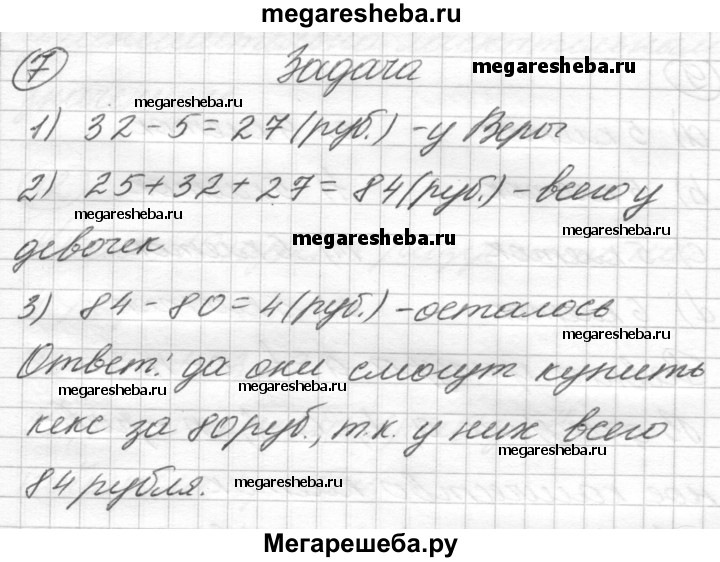 megaresheba.ru
7 Задача megaresheba.ru
megaresheba.ru
1) 32 - 5 = 27 (руб.) - у Веры
2) 25 + 32 + 27 = 84 (руб.) - всего у
megaresheba.ru megaresheba.ru
девочек megaresheba.ru
3) 84 - 80 = 4 (руб.) - осталось
megaresheba.ru
Ответ: да они смогут купить
megaresheba.ru megaresheba.ru megaresheba.ru
кекс за 80 руб., т.к. у них всего
megaresheba.ru
84 рубля. megaresheba.ru
Мегарешеба.ру